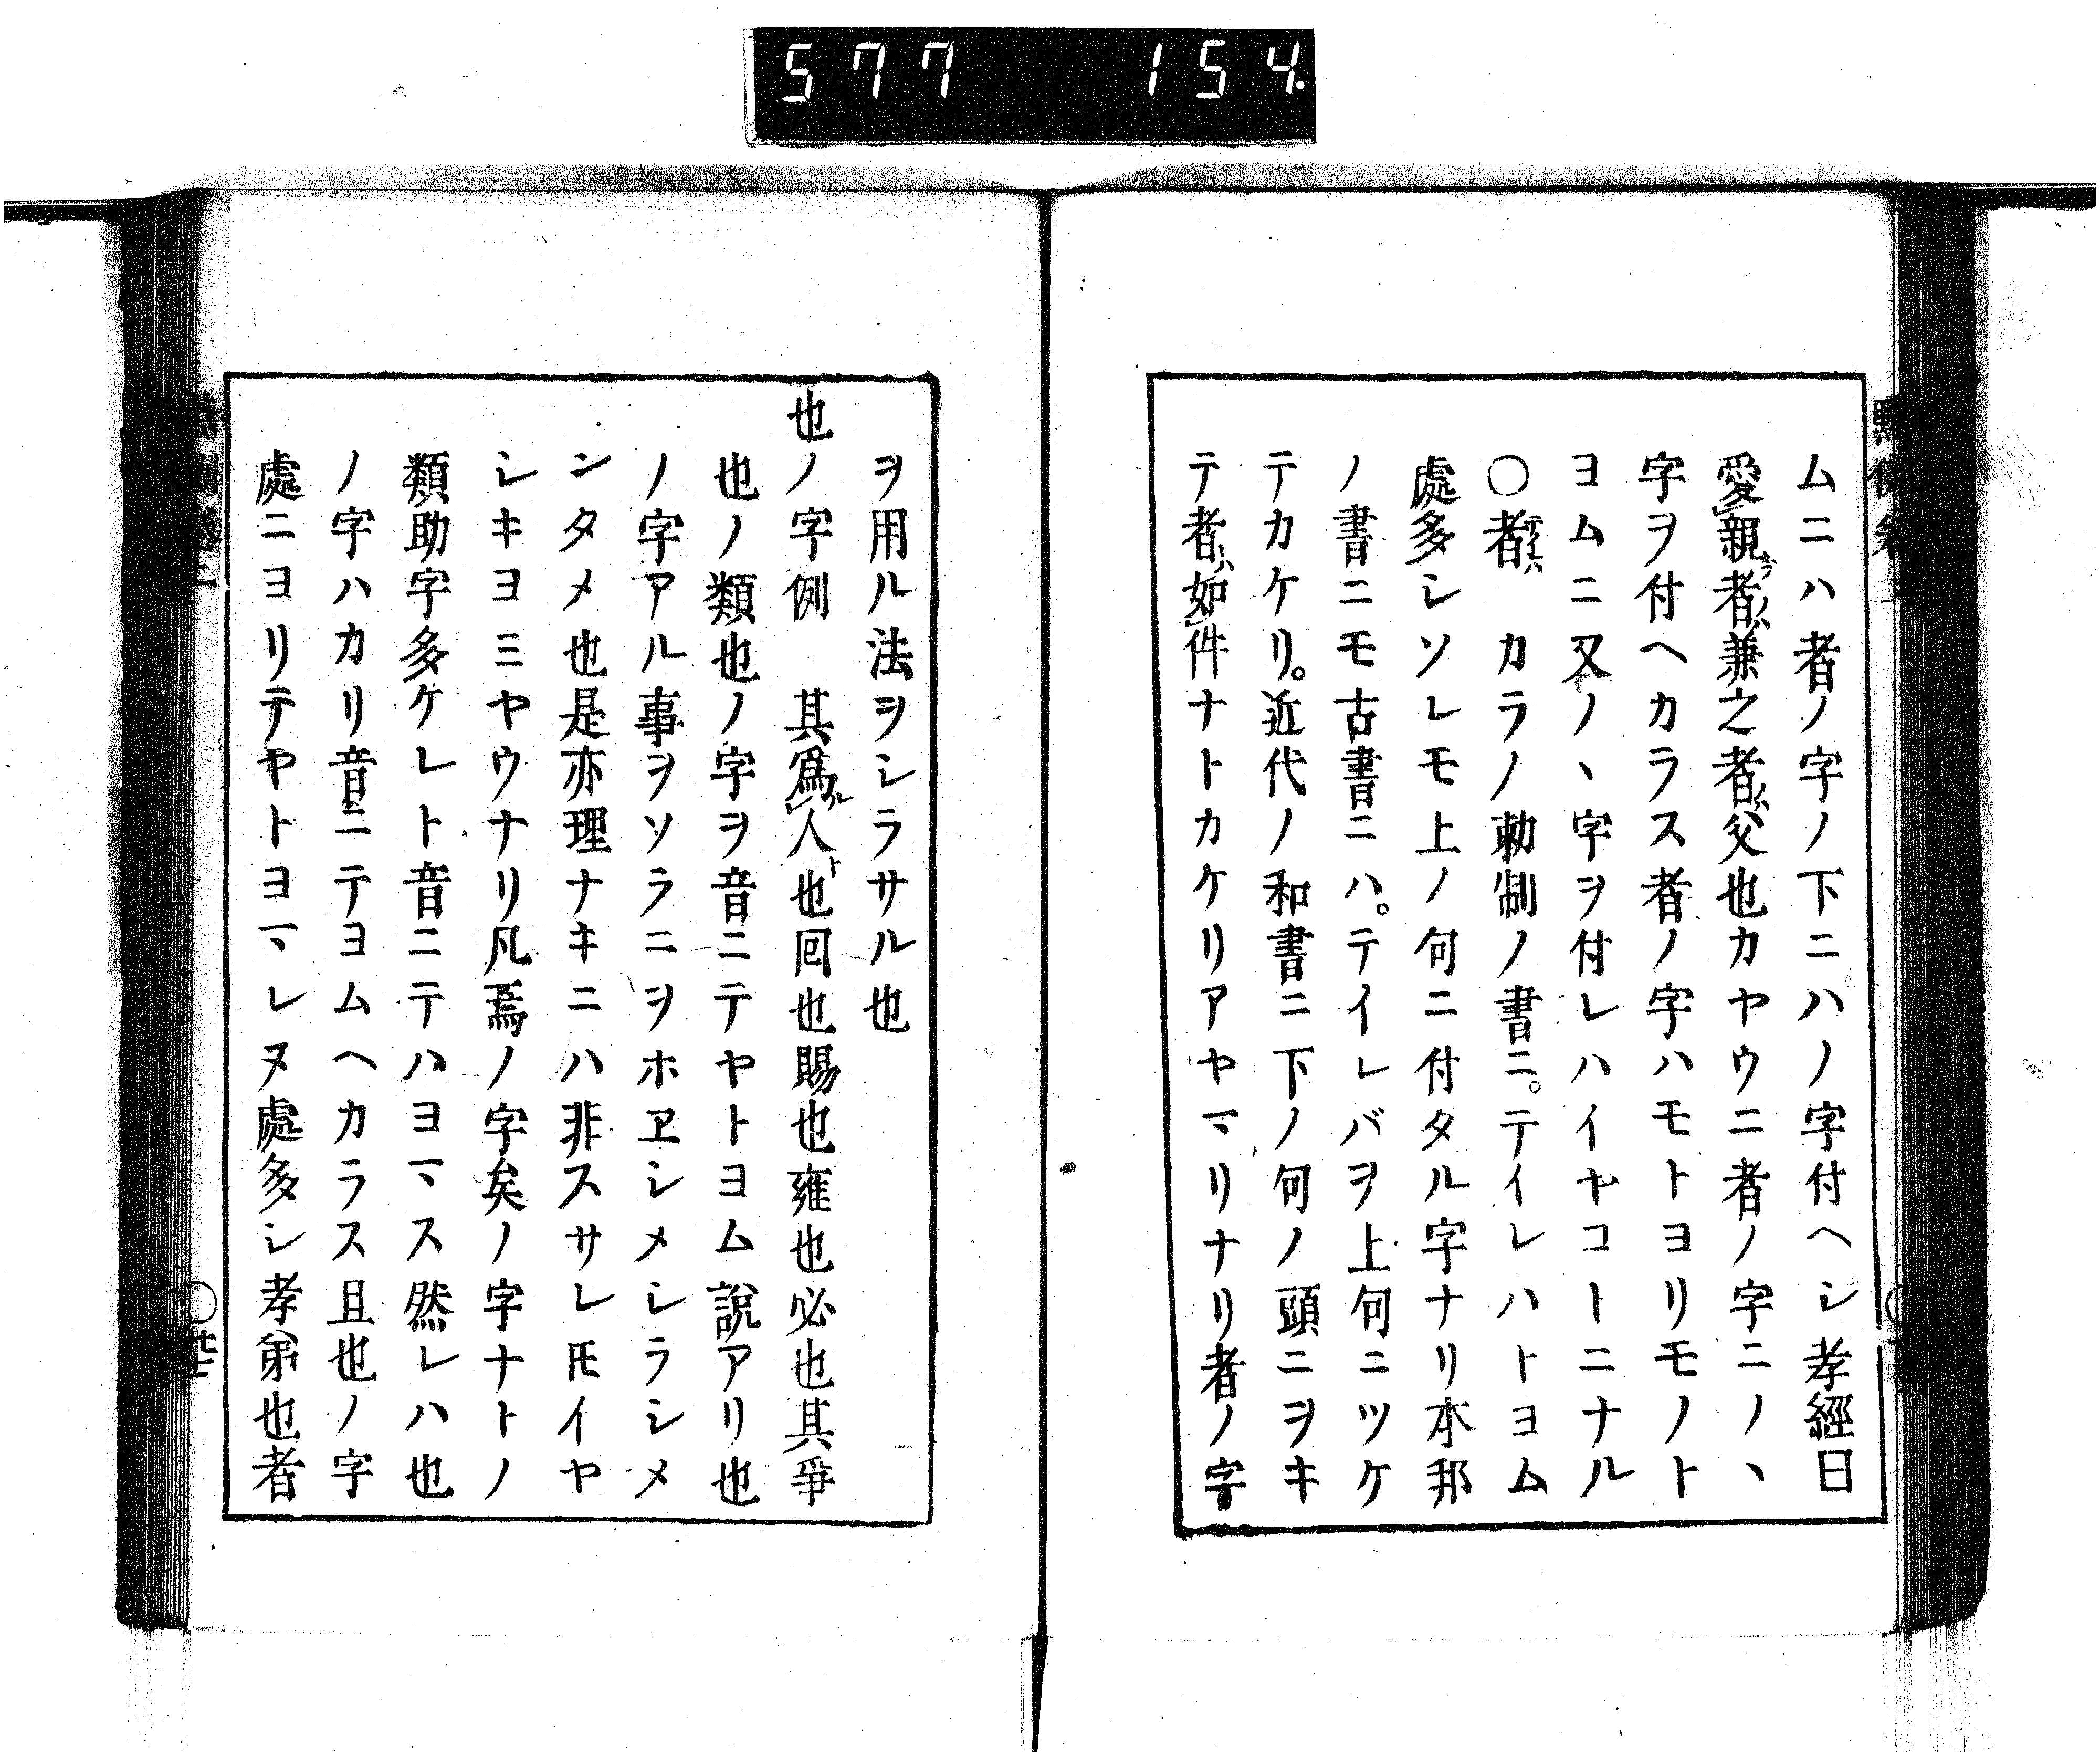 577 154.
ムニハ者ノ字ノ下ニハノ字付ヘシ孝經曰
愛親者兼之者父也カヤウニ者ノ字ニノヽ
字ヲ付ヘカラス者ノ字ハモトヨリモノト
ヨムニ又ノヽ字ヲ付レハイヤコトニナル
〇者 カラノ勅制ノ書ニ。テイレハトヨム
處多シソレモ上ノ句ニ付タル字ナリ本邦
ノ書ニモ古書ニハ。テイレバヲ上句ニツケ
テカケリ。近代ノ和書ニ下ノ句ノ頭ニヲキ
テ者如件ナトカケリアヤマリナリ者ノ字
ヲ用ル法ヲシラサル也
也ノ字例 其爲人也囘也賜也雍也必也其爭
也ノ類也ノ字ヲ音ニテヤトヨム說アリ也
ノ字アル事ヲソラニヲホヱシメシラシメ
ンタメ也是亦理ナキニハ非スサレ𪜈イヤ
シキヨミヤウナリ凡焉ノ字矣ノ字ナトノ
類助字多ケレト音ニテハヨマス然レハ也
ノ字ハカリ音ニテヨムヘカラス且也ノ字
處ニヨリテヤトヨマレヌ處多シ孝弟也者